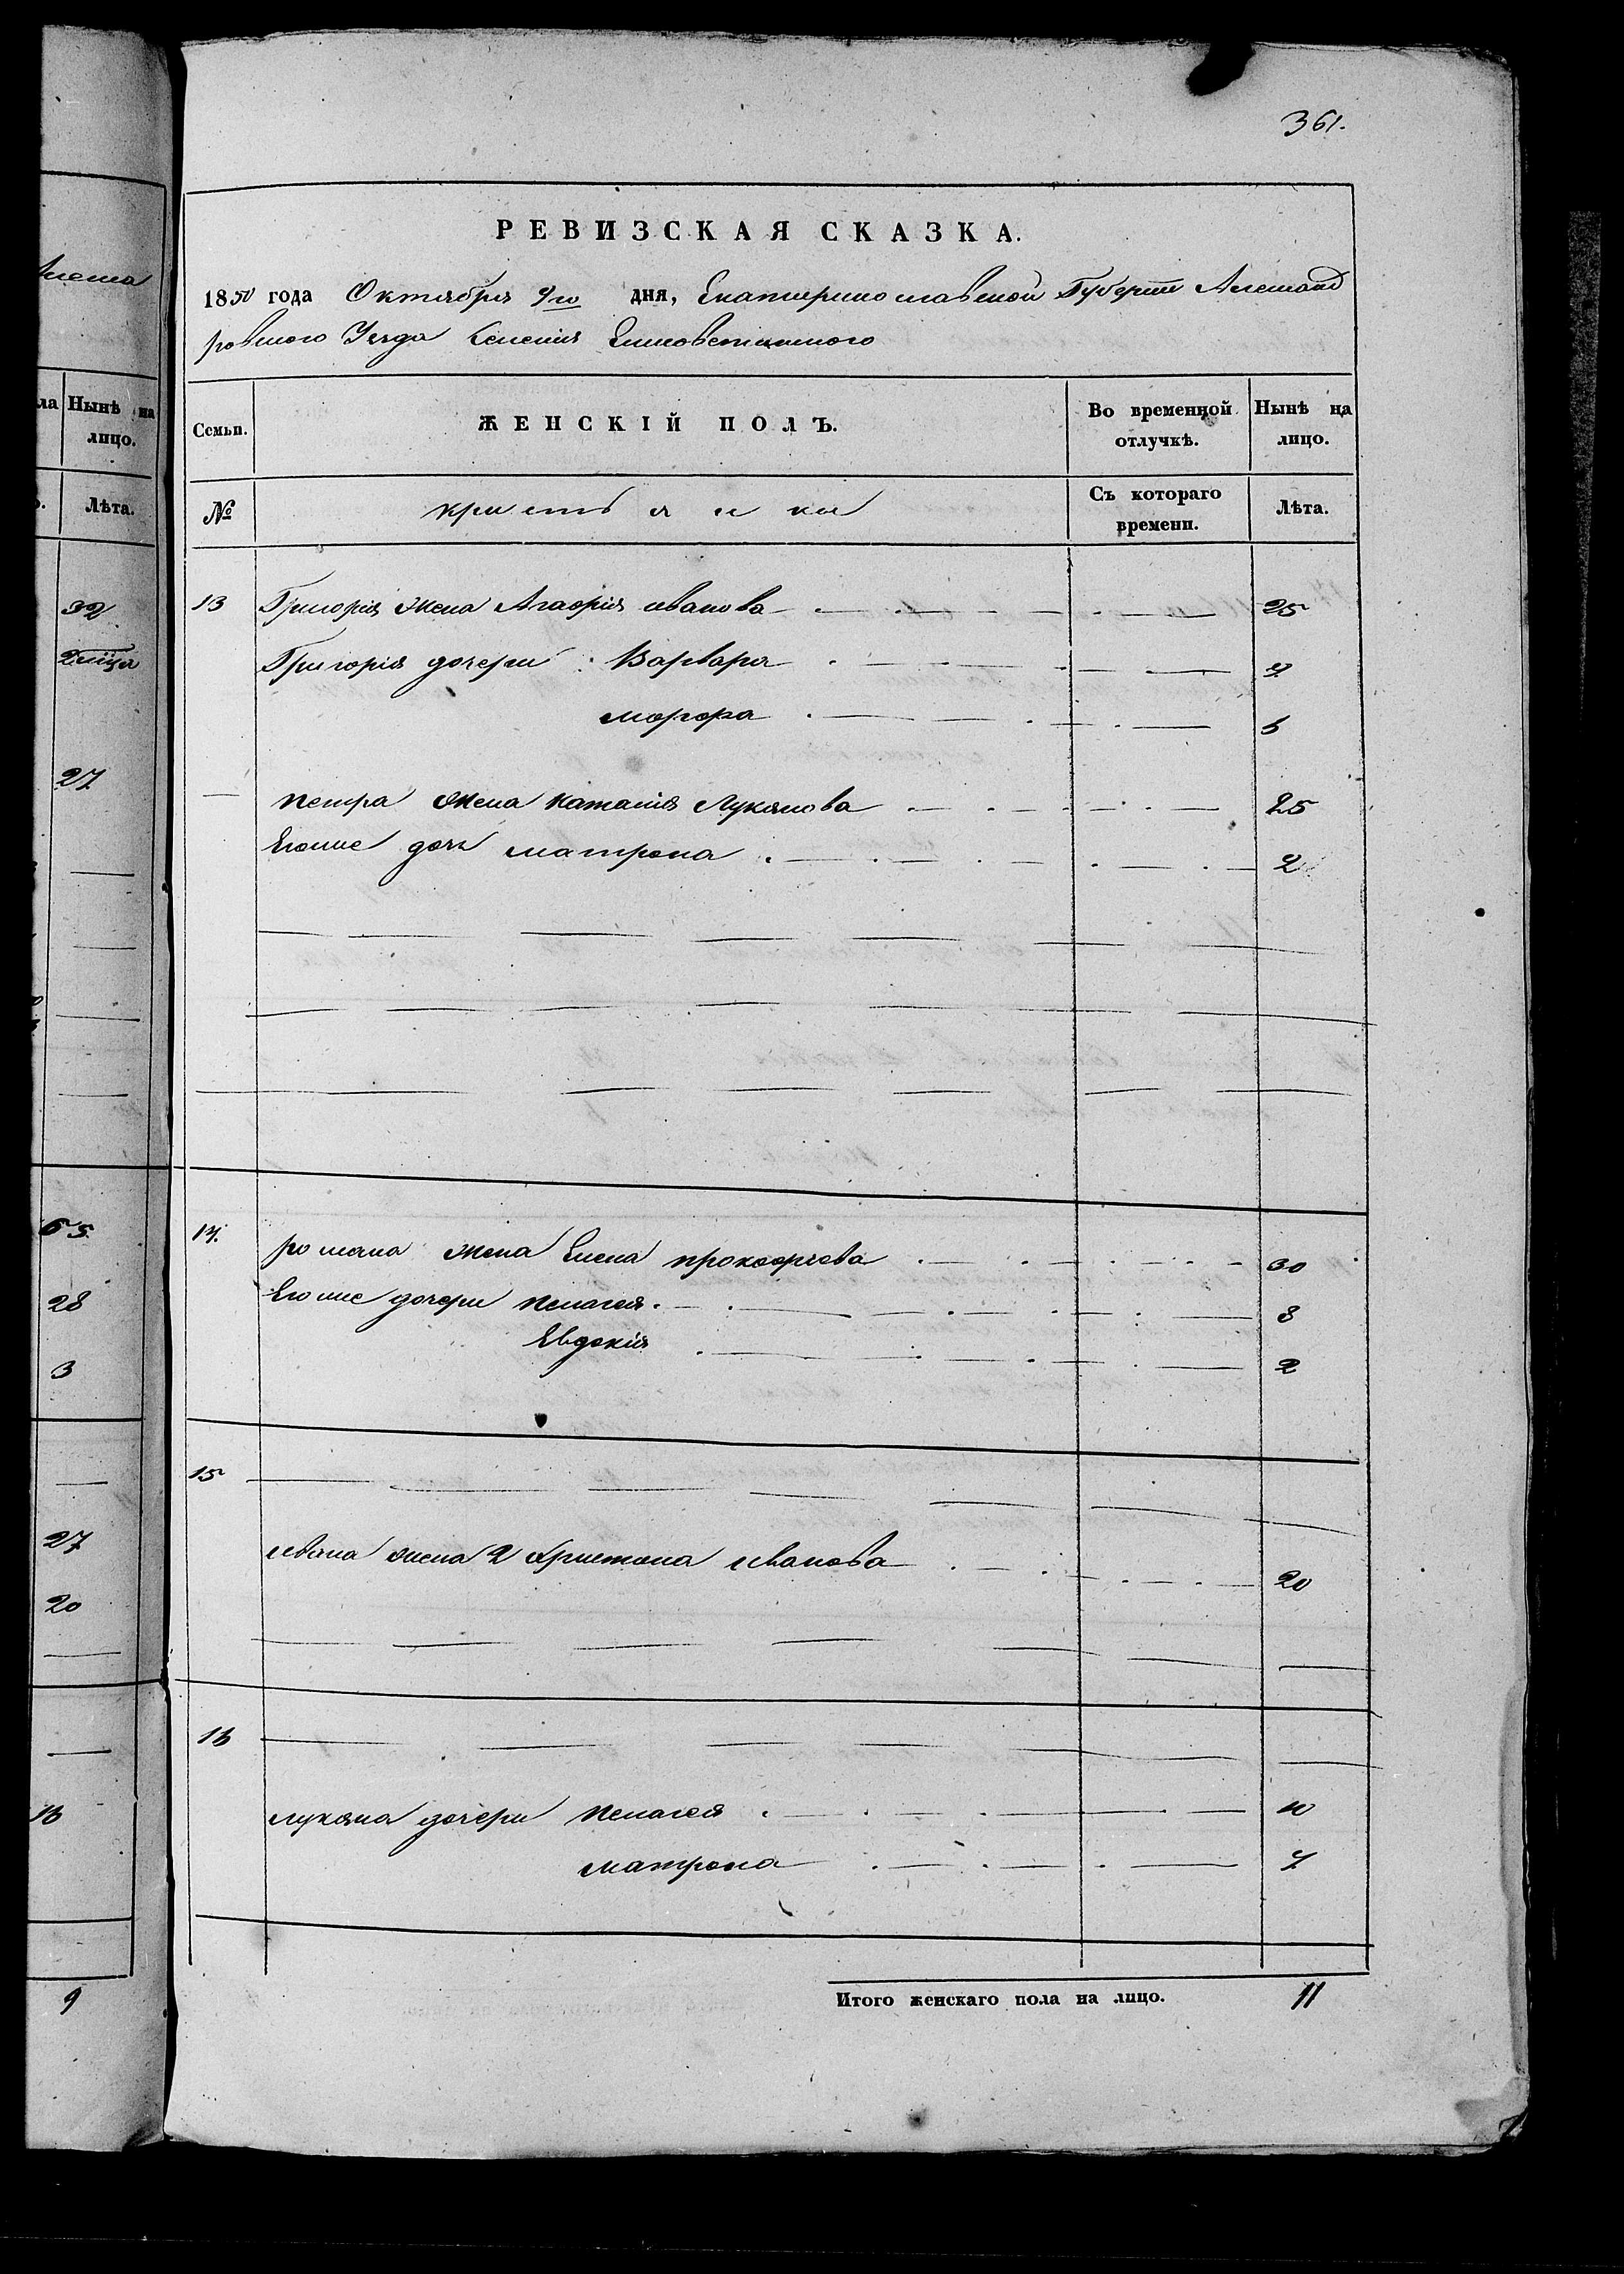 361.
РЕВИЗСКАЯ СКАЗКА.
1850 года Октября 9го дня, Екатеринославской Губернии Александ
ровского Уезда Селения Елисоветинского
Семьи. ЖЕНСКІЙ ПОЛЪ. Во временной отлучкѣ. Нынѣ на лицо.
№ Съ котораго времени. Лѣта.
13 Григорія жена Агафія иванова 25
Григорія дочери Варвара 7
6
петра жена Наталия Лукянова 25
Егоже дочь матрона 2
14. романа жена Елена прокофьева 30
Егоже дочери пелагея 8
Евдокія 2
15
ивана жена 2 Христина иванова 20
16
лукяна дочери пелагея 10
матрона 7
Итого женскаго пола на лицо. 11
ла Нынѣ на лицо.
Лѣта.
32
27
65
28
3
27
20
16
9